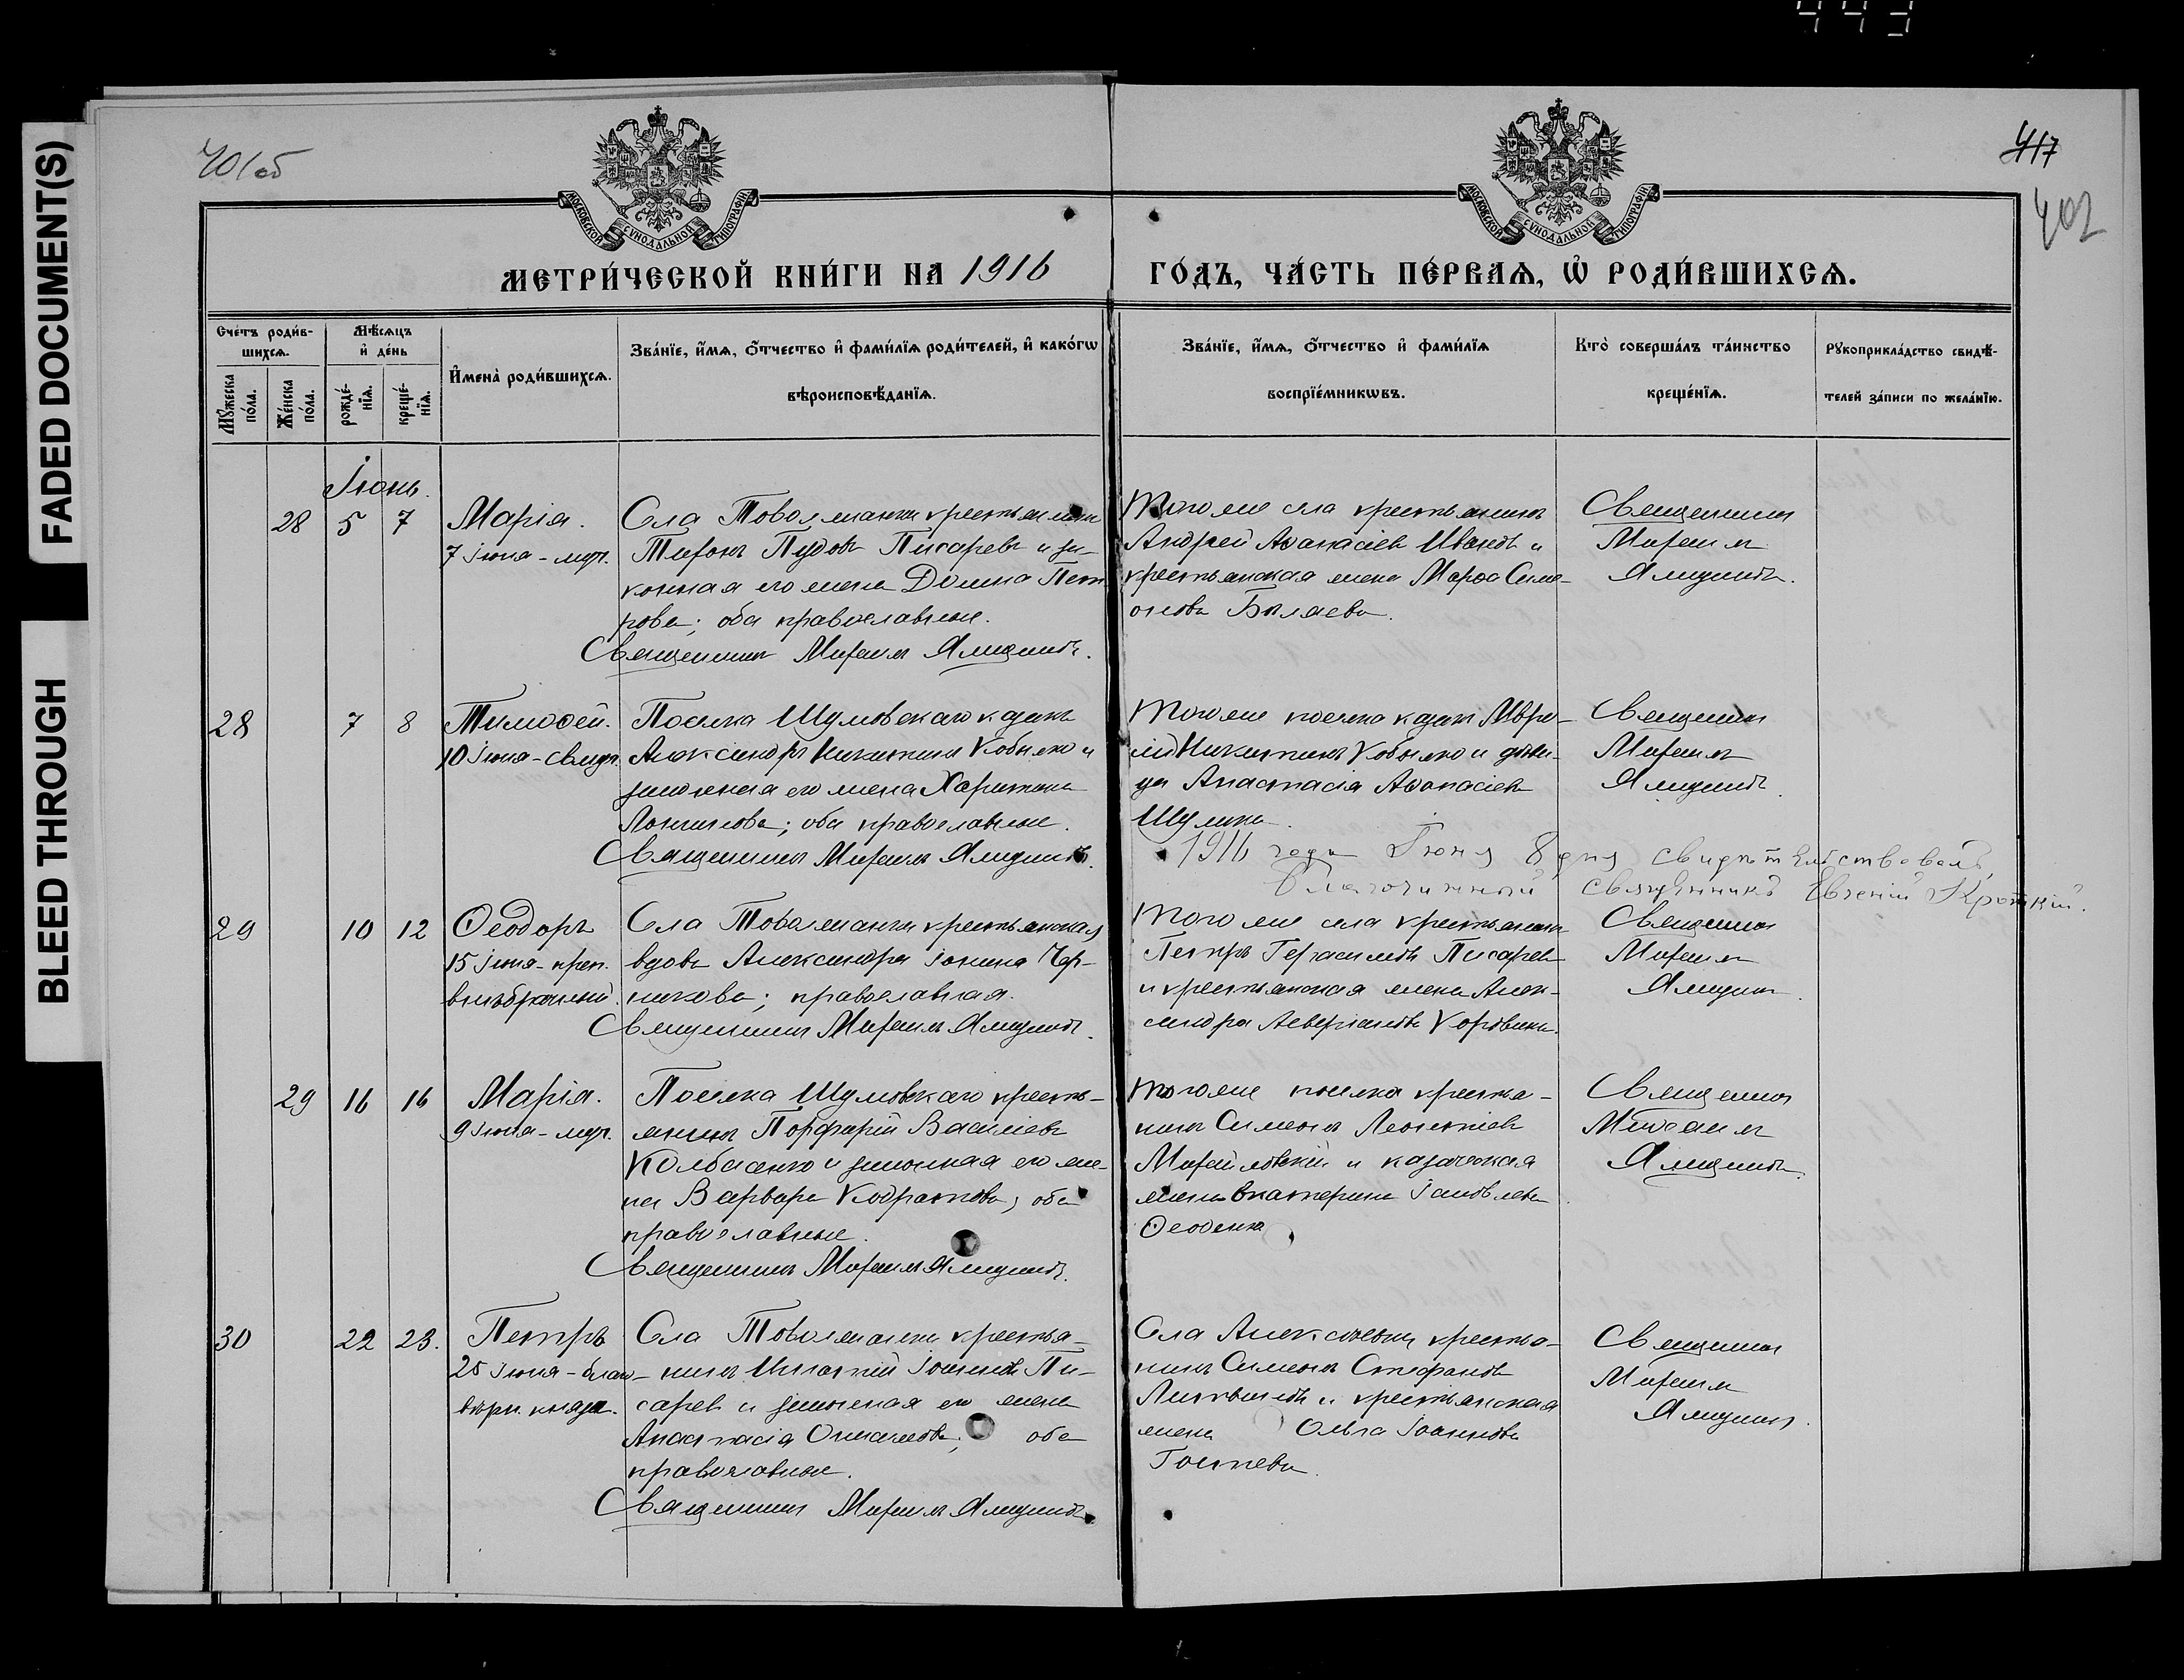 443
FADED DOCUMENT(S)
BLEED THROUGH
401об
417
402
МОСКОВСКОЙ СѴНОДАЛЬНОЙ ТИПОГРАФІИ
МОСКОВСКОЙ СѴНОДАЛЬНОЙ ТИПОГРАФІИ
МЕТРИ́ЧЕСКОЙ КНИ́ГИ НА 1916 ГО́ДЪ, ЧА́СТЬ ПЕ́РВАѦ, Ѡ҆ РОДИ́ВШИХСѦ.
Сче́тъ роди́в-
шихсѧ.
Мꙋ́жеска по́ла.
Же́нска по́ла.
Мѣ́сѧцъ
и҆ де́нь
рожде́-
нїѧ.
креще́-
нїѧ.
И҆мена̀ роди́вшихсѧ.
Зва́нїе, и҆́мѧ, ѻ҆́тчество и҆ фами́лїѧ роди́телей, и҆ како́гѡ
вѣроисповѣ́данїѧ.
Зва́нїе, и҆́мѧ, ѻ҆́тчество и҆ фами́лїѧ
воспрїе́мникѡвъ.
Кто̀ соверша́лъ та́инство
креще́нїѧ.
Рꙋкоприкла́дство свидѣ́-
телей за́писи по жела́нїю.
Іюнь.
28 5 7 Марія.
7 Іюня - муч.
Села Товолжанки крестьянинъ
Тифонъ Пудовъ Писаревъ и за-
конная его жена Домна Пет
рова; оба православные.
Священникъ Михаилъ Ямщиковъ.
Того же села крестьянинъ
Андрей Аѳанасіевъ Ивановъ и
крестьянская жена Марѳа Симе-
онова Бѣляева.
Священникъ
Михаилъ
Ямщиковъ.
28 7 8 Тимоѳей.
10 Іюня - свящ.
Поселка Шумовскаго казакъ
Александръ Никитинъ Кобылко и
законная его жена Харитина
Логинова; оба православные.
Священникъ Михаилъ Ямщиковъ.
Того же поселка казакъ Авра-
мій Никитинъ Кобылко и дѣви-
ца Анастасія Аѳанасіева
Шулика.
Священникъ
Михаилъ
Ямщиковъ.
1916 года Іюня 8 дня свидѣтельствовалъ,
Благочинный священникъ Евгеній Кроткій.
29 10 12 Ѳеодоръ
15 Іюня - преп.
внѣбрачный.
Села Товолжанки крестьянская
вдова Александра Іонина Чер-
никова; православная.
Священникъ Михаилъ Ямщиковъ.
Того же села крестьянинъ
Петръ Герасимовъ Писаревъ
и крестьянская жена Алек-
сандра Аверіанова Коровина.
Священникъ
Михаилъ
Ямщиковъ.
29 16 16 Марія.
9 Іюня - муч.
Поселка Шумовскаго кресть-
янинъ Порфирій Василіевъ
Колбасенко и законная его же-
на Варвара Кодратова; оба
православные.
Священникъ Михаилъ Ямщиковъ.
Того же поселка крестья-
нинъ Симеонъ Леонтіевъ
Михайловскій и казачская
жена Екатерина Іаковлева
Ѳеоденко.
Священникъ
Михаилъ
Ямщиковъ.
30 22 23. Петръ
25 Іюня - благо-
вѣрн. князя.
Села Товолжанки крестья-
нинъ Игнатій Іоанновъ Пи-
саревъ и законная его жена
Анастасія; оба
православные.
Священникъ Михаилъ Ямщиковъ.
Села Алексѣевки крестья-
нинъ Симеонъ Стефановъ
Литвиновъ и крестьянская
жена Ольга Іоаннова
Гостева.
Священникъ
Михаилъ
Ямщиковъ.